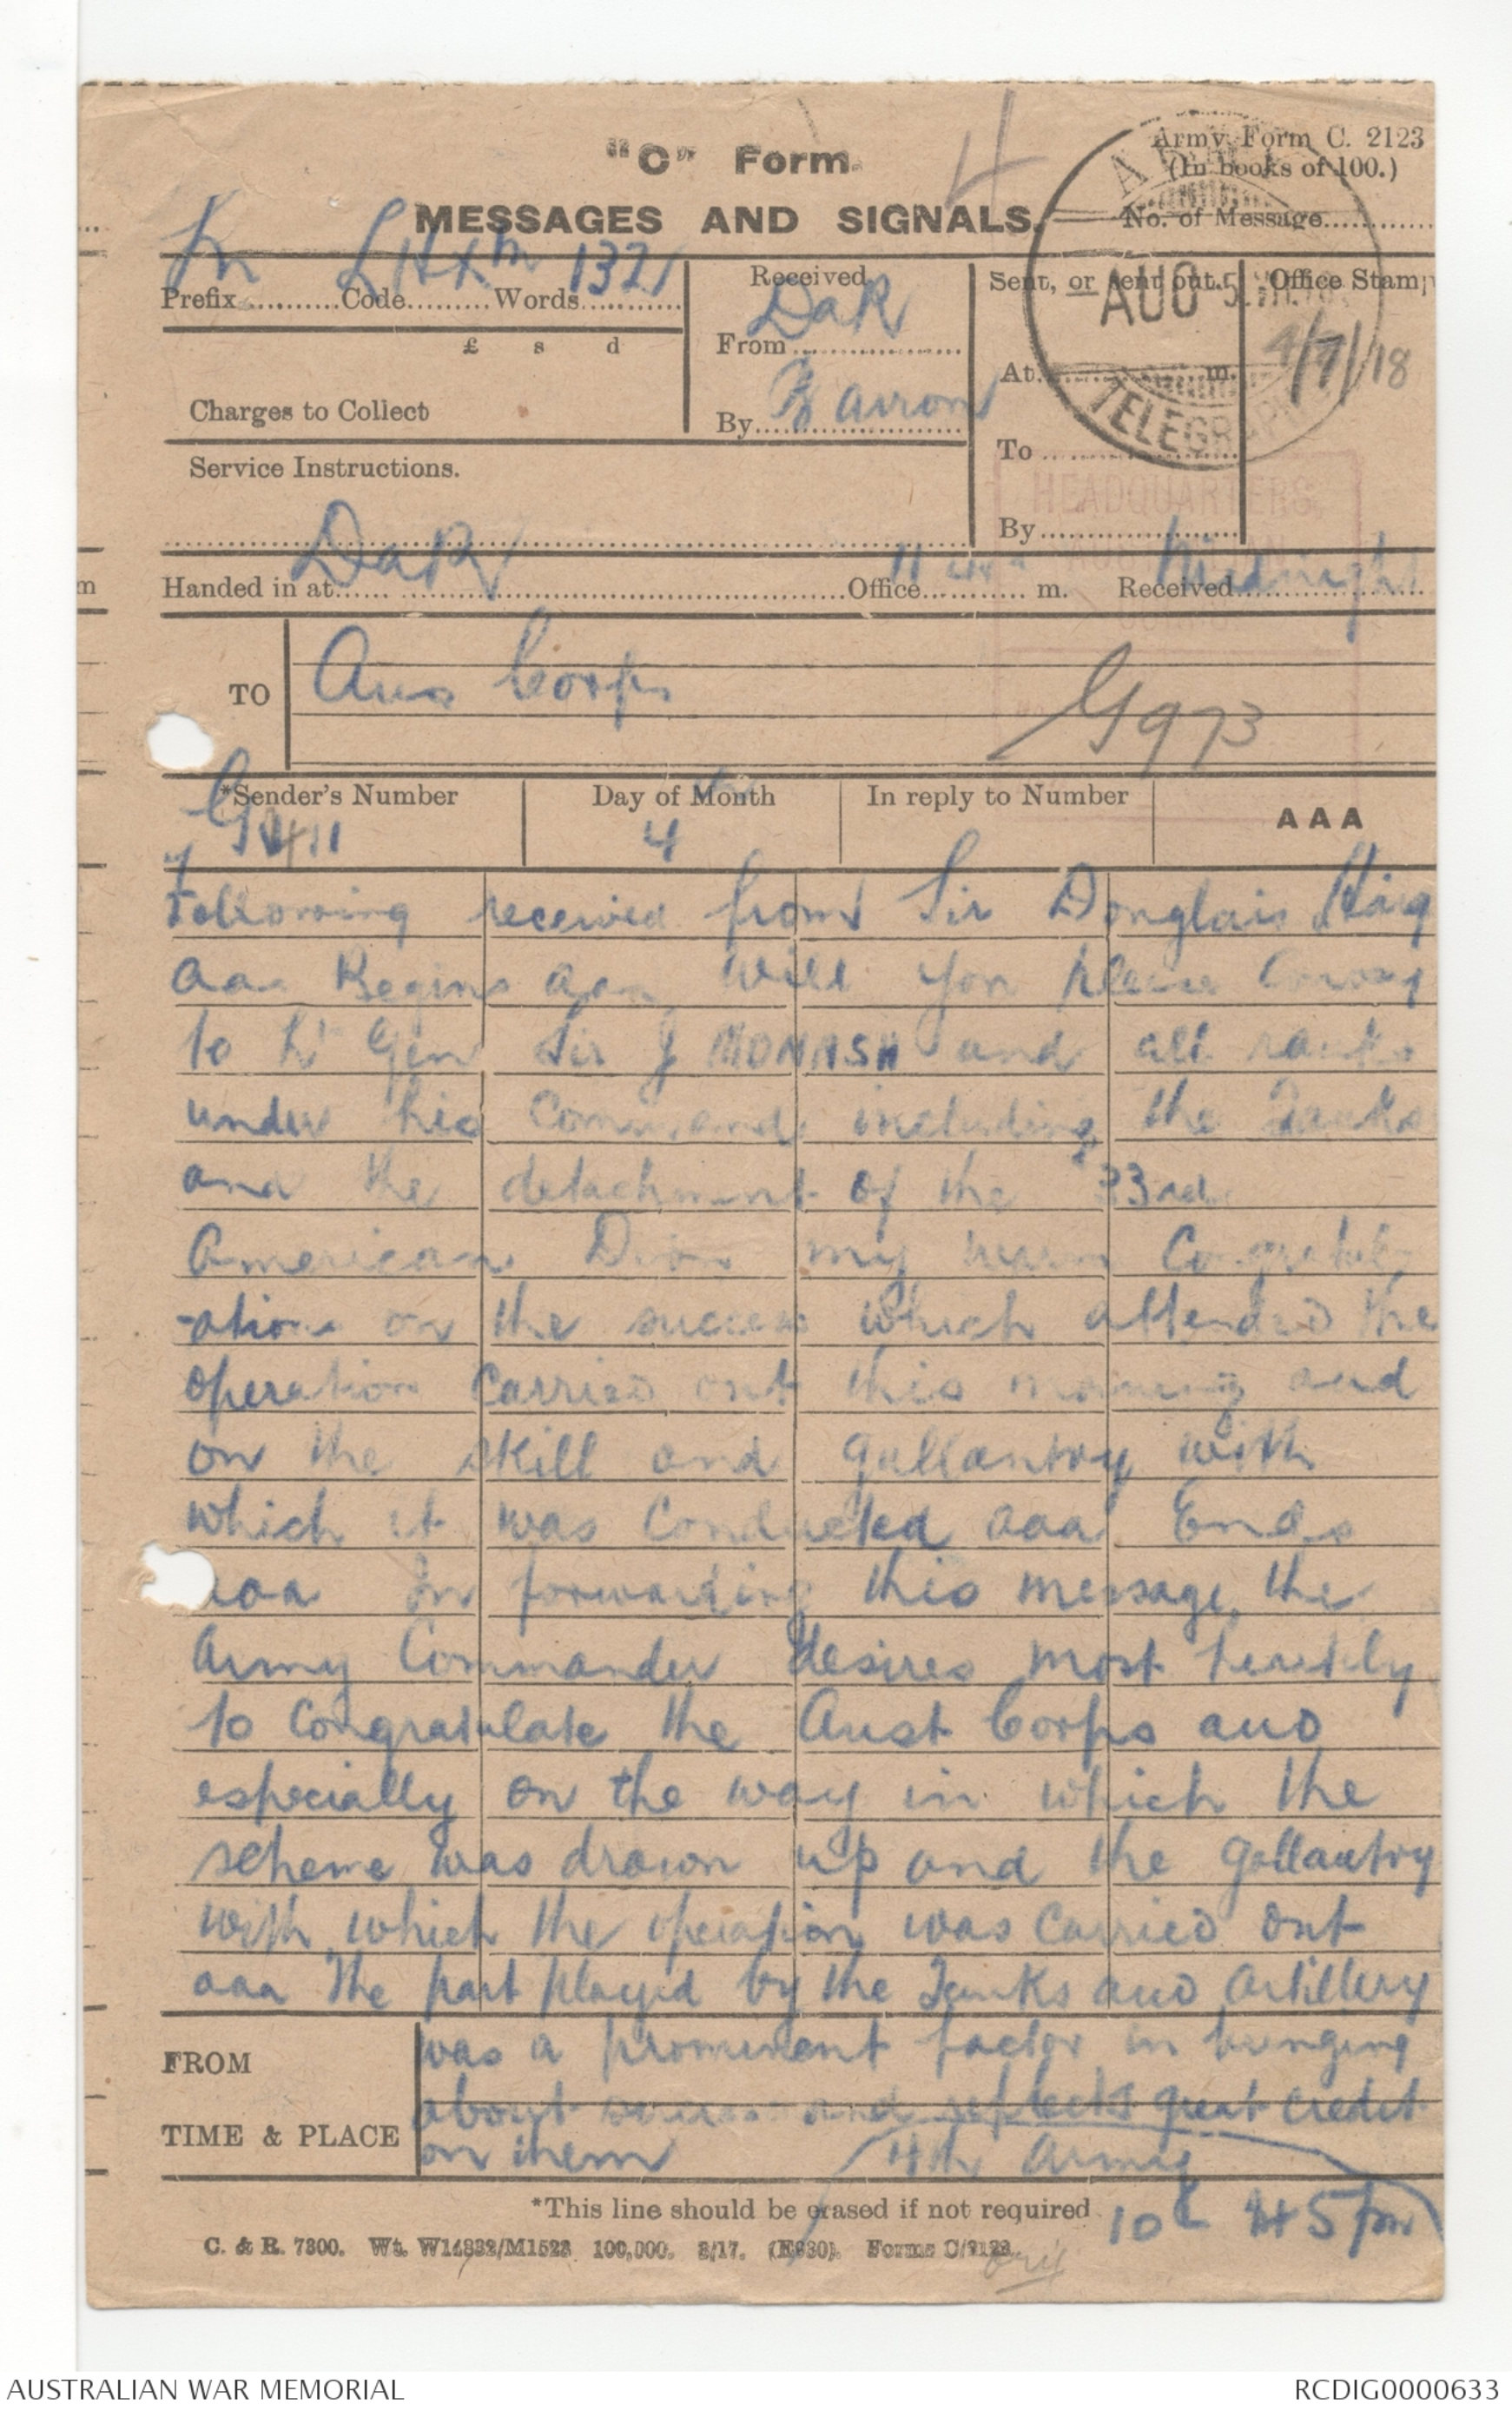 4
Army Form C. 2123
"C" Form.
(In books of 100.)
MESSAGES AND SIGNALS.
No. of Message
Prefix Code Words 132
Received
Sent, or sent out.
Office Stamp
AUG 5
£ s d
From DaR
At m.
4/7/18
Charges to Collect
By Barron
TELEGRAPH
To
Service Instructions.
HEADQUARTERS,
By
DaR
Handed in at Office m. Received Midnight
TO Aus Corps
G973
*Sender's Number
Day of Month
In reply to Number
AAA
G1411
4
Following received from Sir Douglais Haig
aaa Begins aaa will you please convey
to Lt Gen Sir J MONASH and all ranks
under his command including the Tanks
and the detachment of the 33rd
American Divn my warm Congratul
-ations on the success which attended the
operation carried out this morning and
on the skill and gallantry with
which it was conducted aaa Ends
aaa In forwarding this message the
Army Commander desires most heartily
to congratulate the Aust Corps and
especially on the way in which the
scheme was drawn up and the gallantry
with which the operation was carried out
aaa The part played by the Tanks and Artillery
was a prominent factor in bringing
about success and reflects great credit
on them
FROM
TIME & PLACE
4th Army
*This line should be erased if not required
10 45 pm
C. & R. 7800. Wt. W14832/M1523 100,000. 8/17. (E980). Forms C/2123
AUSTRALIAN WAR MEMORIAL
RCDIG0000633